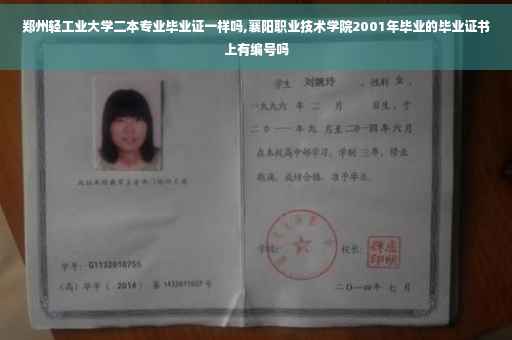 郑州轻工业大学二本专业毕业证一样吗,襄阳职业技术学院2001年毕业的毕业证书
上有编号吗
学生 刘婉玲 ，性别 女 ，
一九九六 年 二 月 出生，于
二〇一一年九 月至二〇一四年六月
在本校高中部学习，学制 三年，修业
期满，成绩合格，准予毕业。
学号：G1132010755
(高) 毕字（ 2014 ）第 1432011027 号
学校：
校长：
二〇一四年 七 月